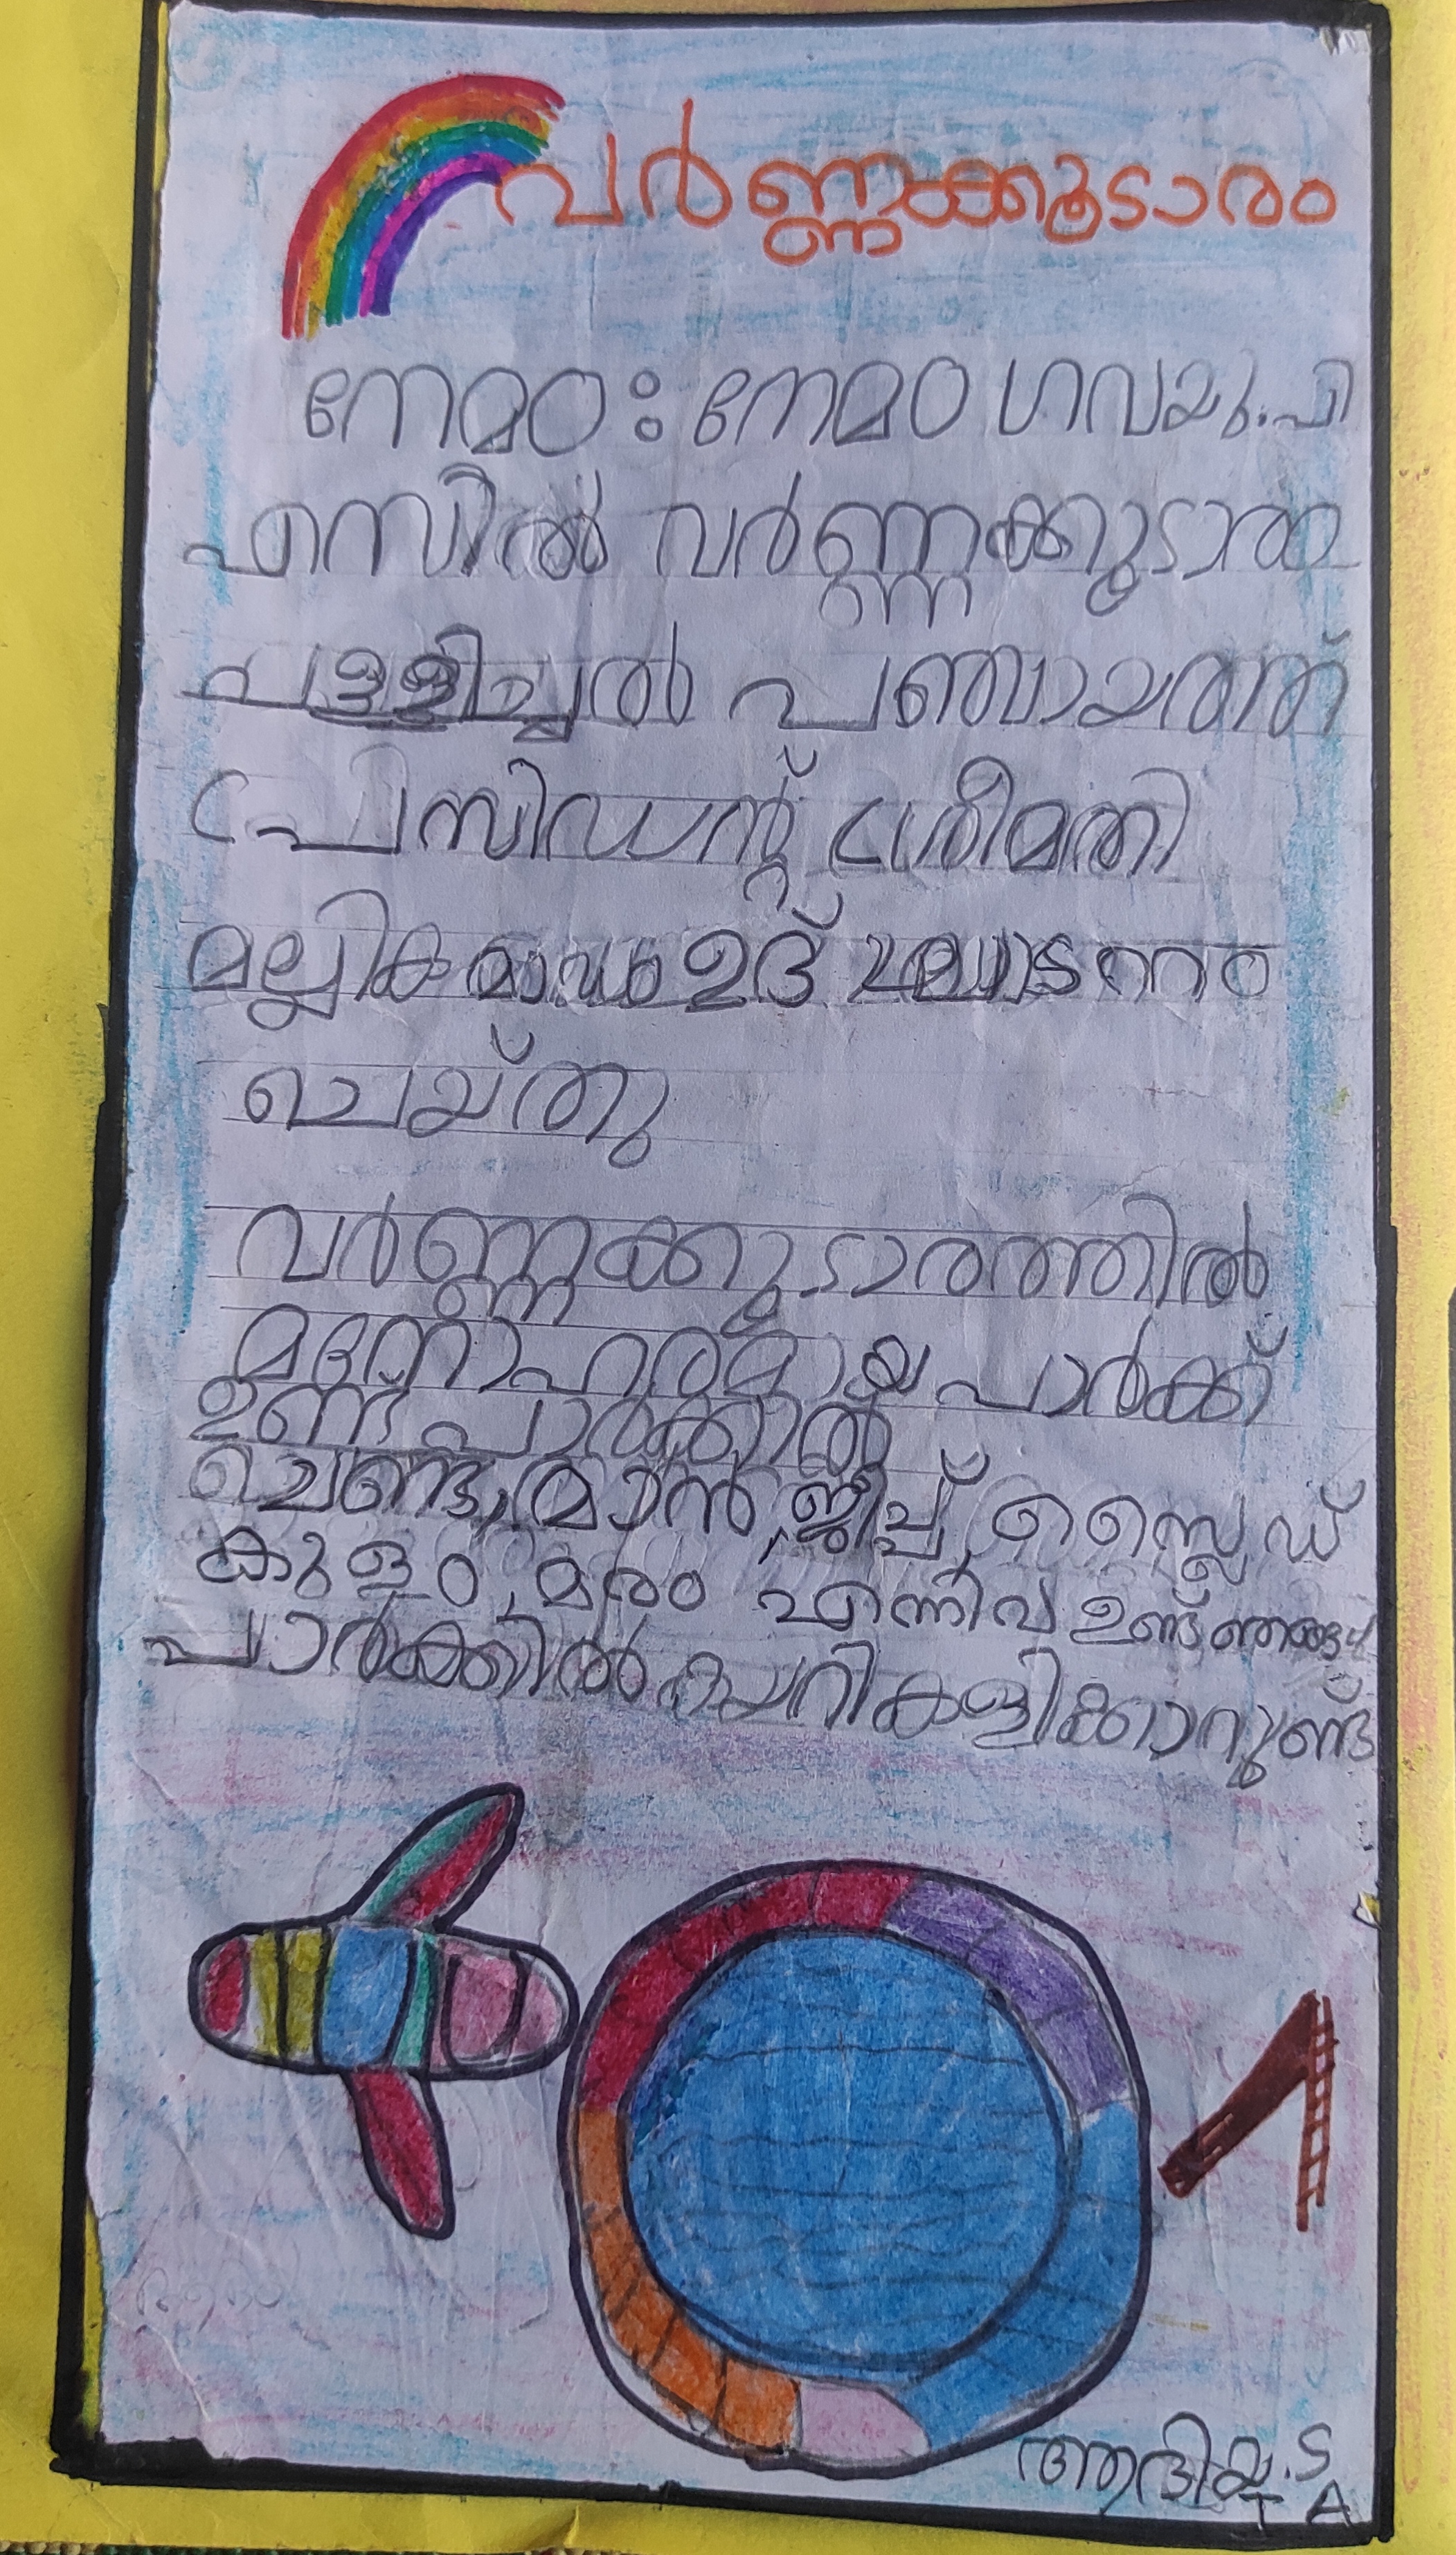 വർണ്ണക്കൂടാരം
നേമം: നേമം ഗവ യു.പി
എസിൽ വർണ്ണക്കൂടാരം
പള്ളിച്ചൽ പഞ്ചായത്ത്
പ്രസിഡന്റ് ശ്രീമതി
മല്ലിക ഉദ്ഘാടനം
ചെയ്തു
വർണ്ണക്കൂടാരത്തിൽ
മനോഹരമായ പാർക്ക്
ഉണ്ട് പാർക്കിൽ
ചെണ്ട, മാൻ, ജീപ്പ്, സ്ലൈഡ്
കുളം, മരം എന്നിവ ഉണ്ട് ഞങ്ങൾ
പാർക്കിൽ കയറി കളിക്കാറുണ്ട്
ആദിയ. S
I A